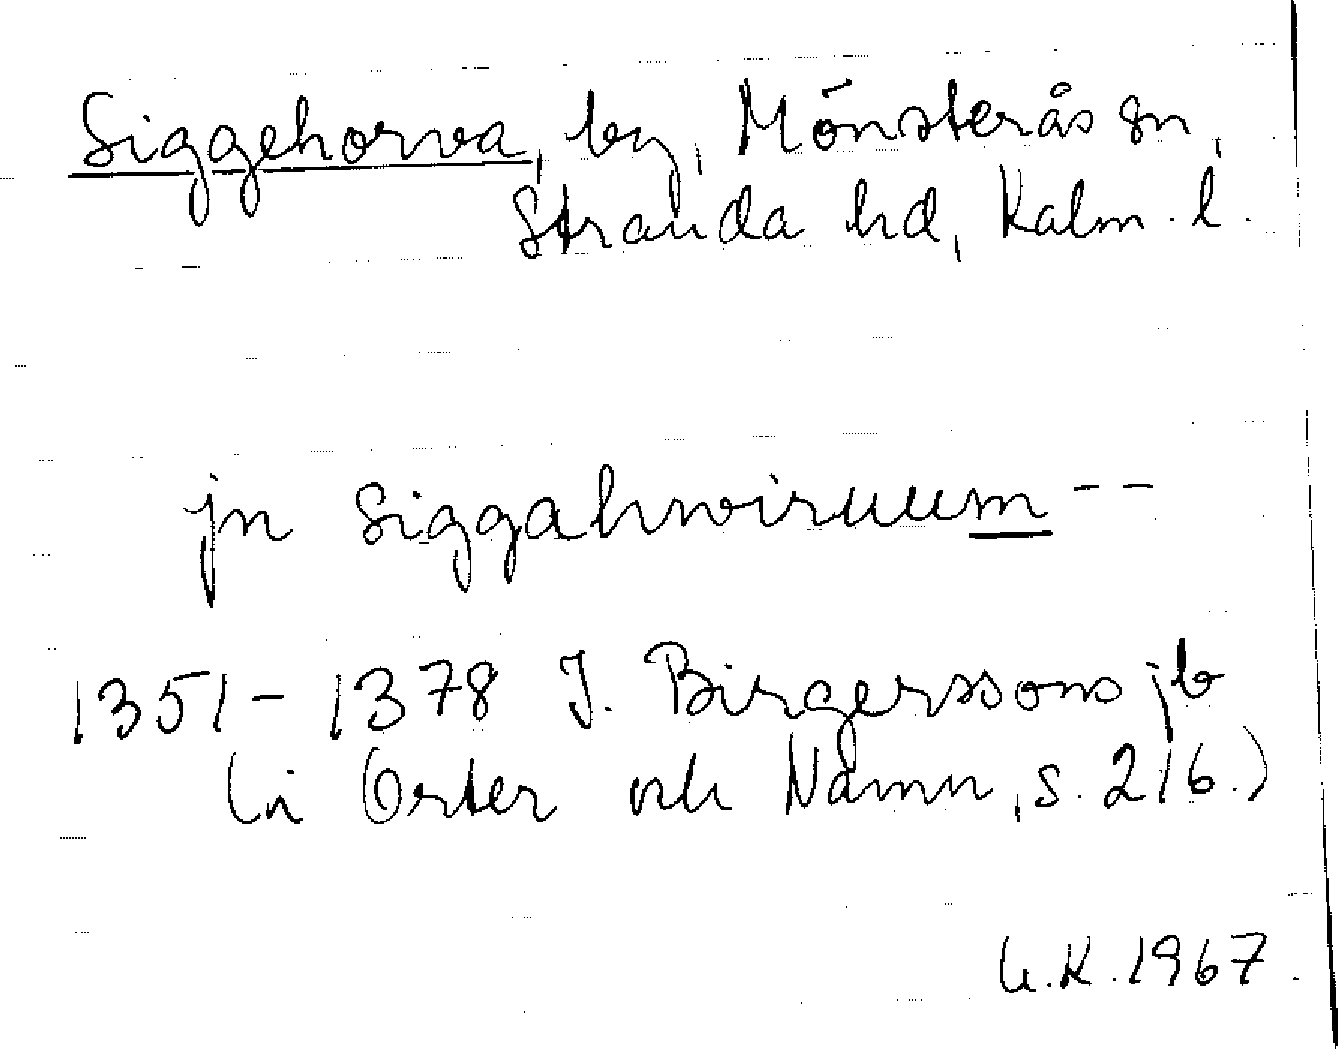 Siggehorva, by, Mönsterås sn,
Stranda hd, Kalm. l.
jn Siggahwiruum --
1351-1378 J. Birgerssons jb
(i Orter och Namn, s. 216.)
U.K. 1967.